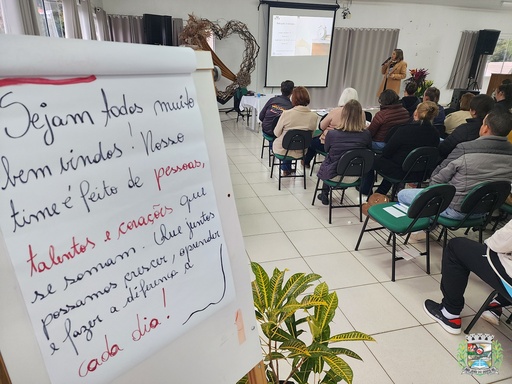 Sejam todos muito
bem vindos! Nosso
time é feito de pessoas,
talentos e corações que
se somam. Que juntos
possamos crescer, aprender
e fazer a diferença a
cada dia!